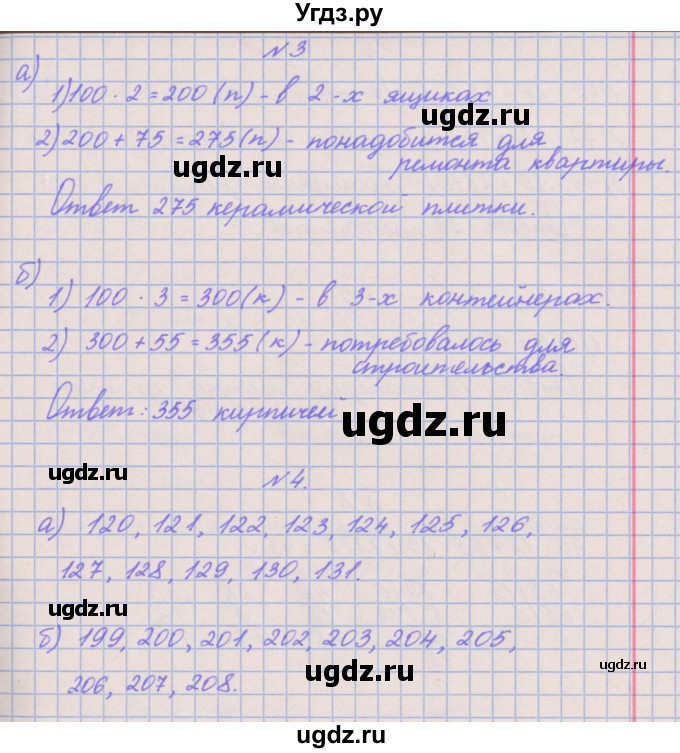 Угдз.ру
№3
а)
1) 100 · 2 = 200 (п) - в 2-х ящиках
ugdz.ru
2) 200 + 75 = 275 (п) - понадобится для
ugdz.ru ремонта квартиры.
Ответ 275 керамической плитки.
ugdz.ru
б)
1) 100 · 3 = 300 (к) - в 3-х контейнерах.
2) 300 + 55 = 355 (к) - потребовалось для
ugdz.ru строительства.
Ответ: 355 кирпичей
ugdz.ru
ugdz.ru
№4.
а) 120, 121, 122, 123, 124, 125, 126,
ugdz.ru
127, 128, 129, 130, 131.
ugdz.ru
б) 199, 200, 201, 202, 203, 204, 205,
ugdz.ru
ugdz.ru
206, 207, 208.
ugdz.ru